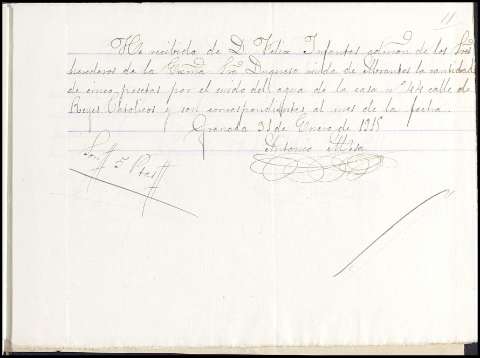 11
He recibido de D. Felix Infantes admon de los Sres
herederos de la Excma Sra Duquesa viuda de Abrantes la cantidad
de cinco pesetas por el cuido del agua de la casa nº 44 calle de
Reyes Catolicos y son correspondientes al mes de la fecha.
Granada 31 de Enero de 1918
Son 5 Ptas
Antonio Mesa